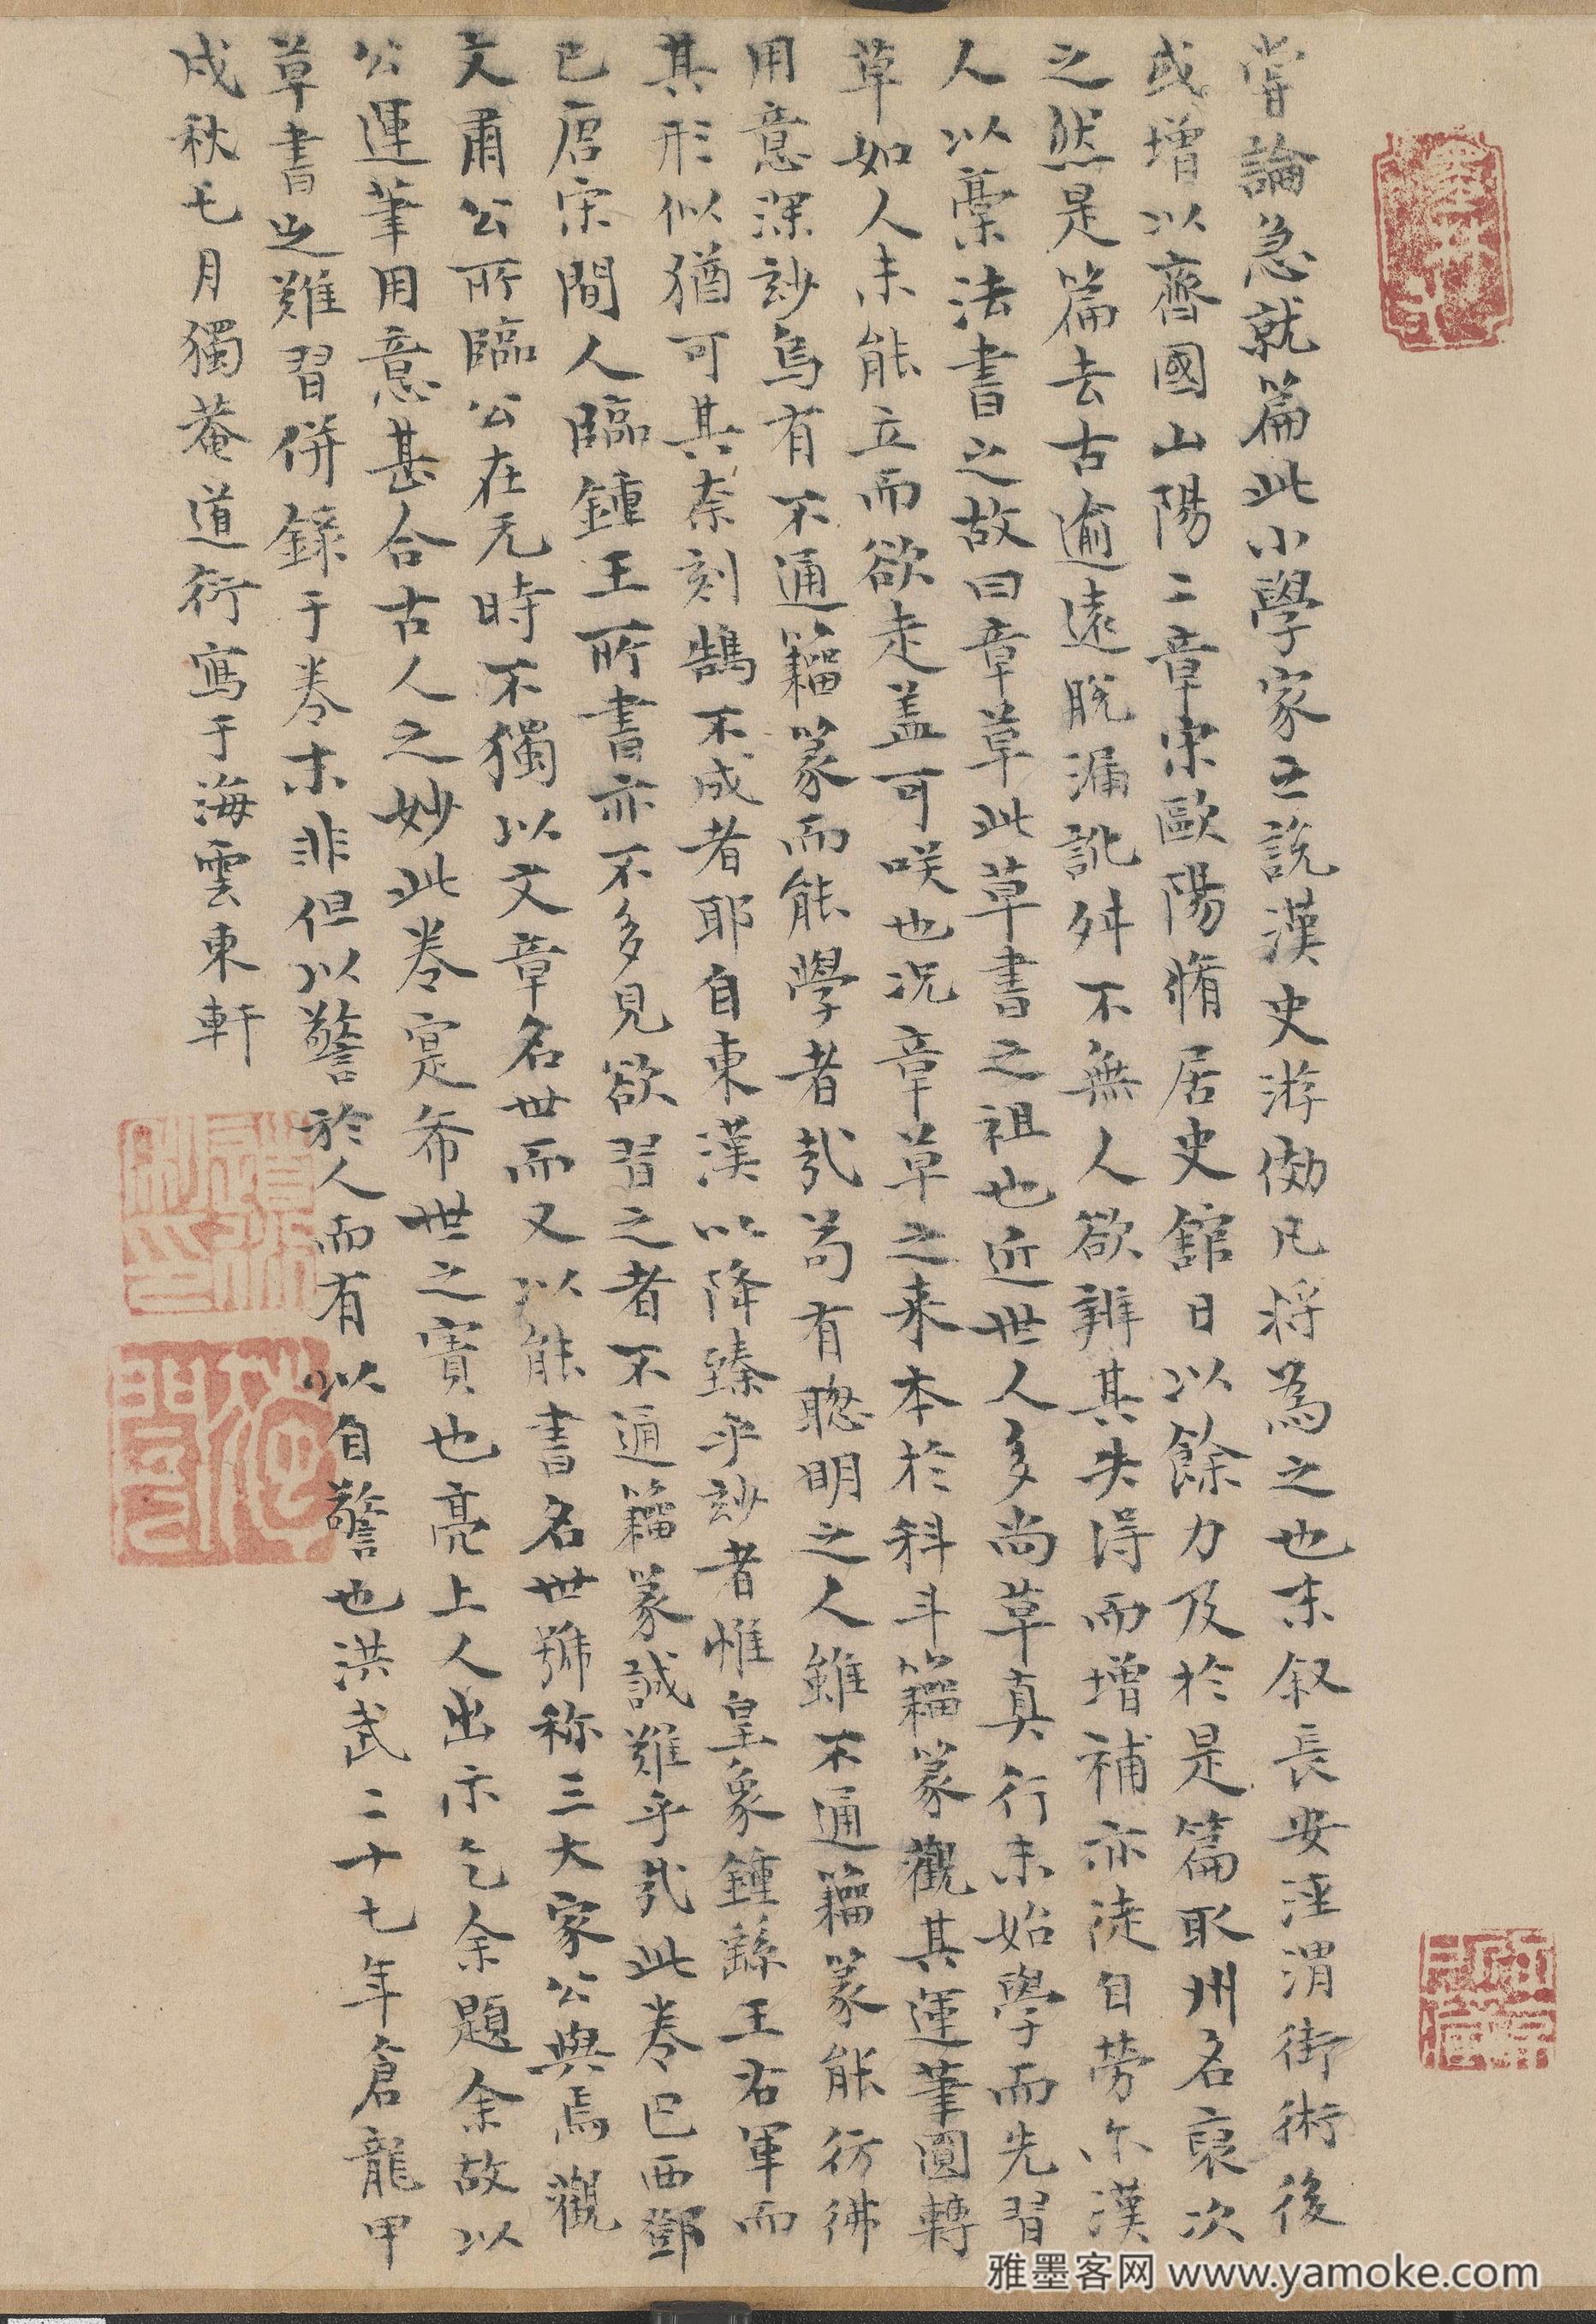 嘗論急就篇此小學家之說漢史游倣凡將為之也末叙長安涇渭街術後
或增以齊國山陽二章宋歐陽脩居史舘日以餘力及於是篇取州名裒次
之然是篇去古逾遠脫漏訛舛不無人欲辨其失得而增補亦徒自勞尔漢
人以稾法書之故曰章草此草書之祖也近世人多尚草真行未始學而先習
草如人未能立而欲走盖可咲也况章草之来本於科斗籀篆觀其運筆圓轉
用意深玅烏有不通籀篆而能學者㢤茍有聰明之人雖不通籀篆能彷彿
其形似猶可其柰刻鵠不成者耶自東漢以降臻乎玅者惟皇象鍾繇王右軍而
已唐宋間人臨鍾王所書亦不多見欲習之者不通籀篆誠難乎㢤此卷巴西鄧
文肅公所臨公在元時不獨以文章名世而又以能書名世號称三大家公與焉觀
公運筆用意甚合古人之妙此卷寔希世之寳也亮上人出示乞余題余故以
草書之難習併錄于卷末非但以警於人而有以自警也洪武二十七年倉龍甲
戌秋七月獨菴道衍寫于海雲東軒
雅墨客网 www.yamoke.com